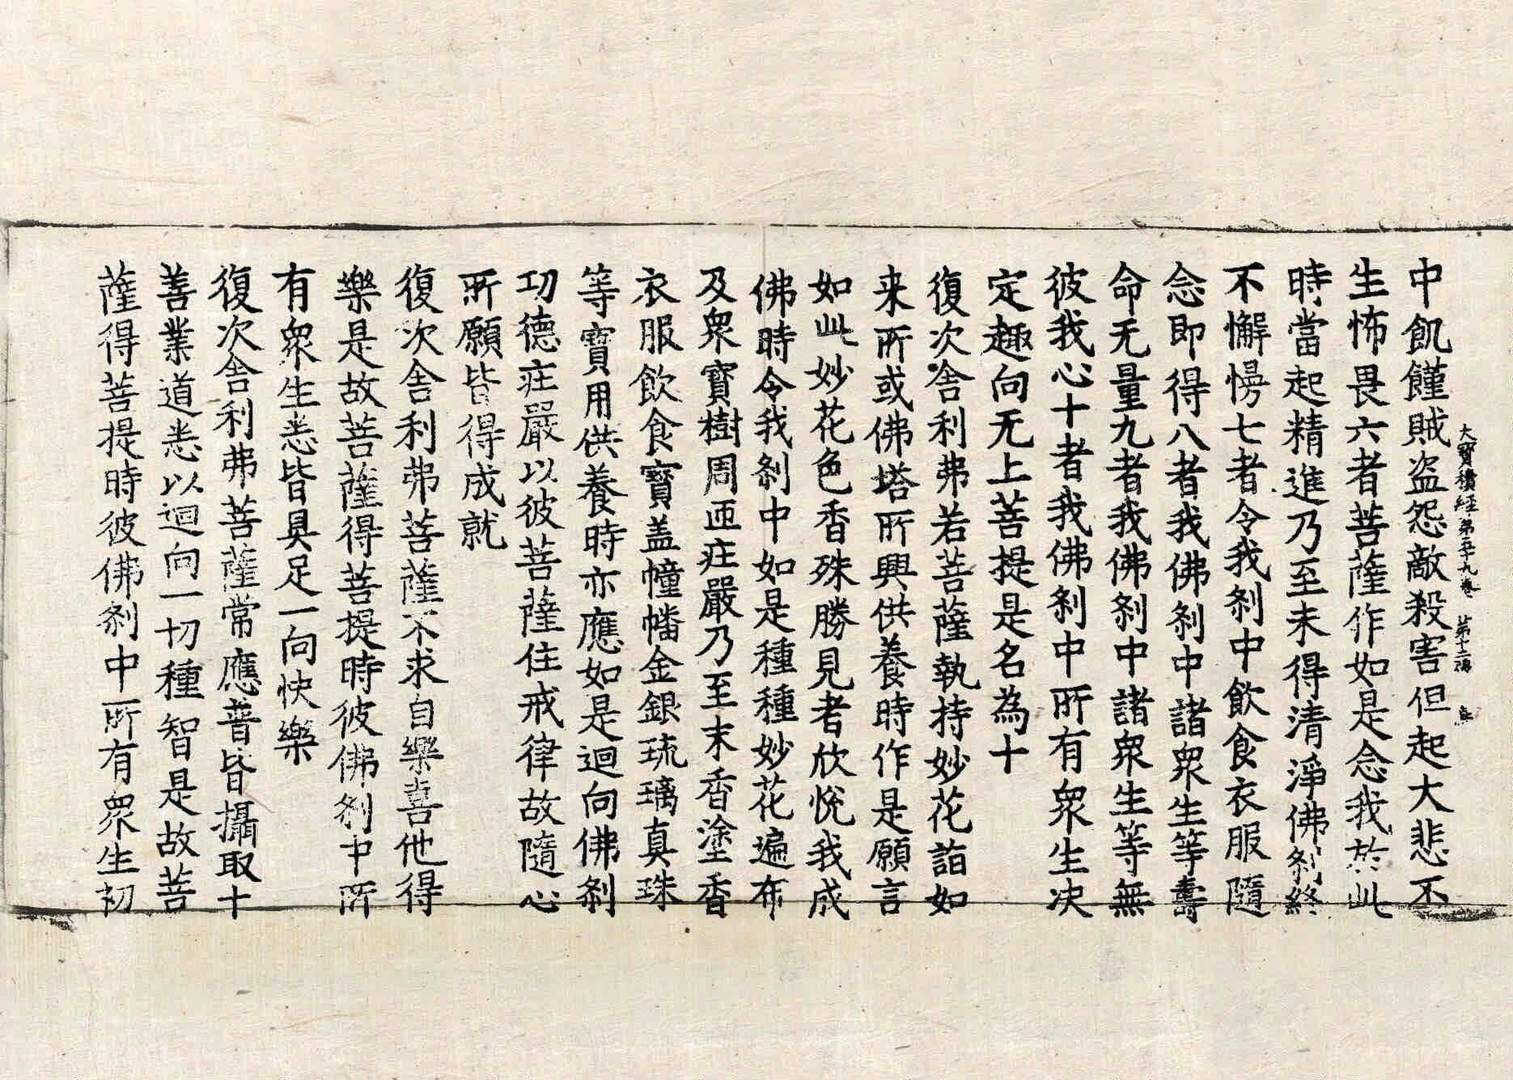 中飢饉賊盜怨敵殺害但起大悲不
大寶積經第五十九卷 第十二張
生怖畏六者菩薩作如是念我於此
時當起精進乃至未得清淨佛剎終
不懈慢七者令我剎中飲食衣服隨
念即得八者我佛剎中諸眾生等壽
命无量九者我佛剎中諸眾生等無
彼我心十者我佛剎中所有眾生決
定趣向无上菩提是名為十
復次舍利弗若菩薩執持妙花詣如
来所或佛塔所興供養時作是願言
如此妙花色香殊勝見者欣悅我成
佛時令我剎中如是種種妙花遍布
及眾寶樹周匝庄嚴乃至末香塗香
衣服飲食寶盖幢幡金銀琉璃真珠
等寶用供養時亦應如是迴向佛剎
功德庄嚴以彼菩薩住戒律故隨心
所願皆得成就
復次舍利弗菩薩不求自樂喜他得
樂是故菩薩得菩提時彼佛剎中所
有眾生悉皆具足一向快樂
復次舍利弗菩薩常應普皆攝取十
善業道悉以迴向一切種智是故菩
薩得菩提時彼佛剎中所有眾生初